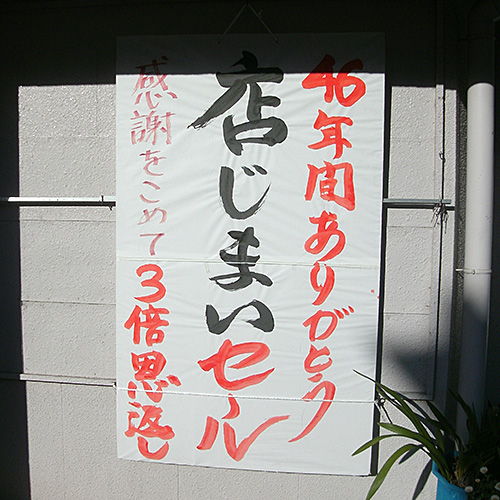 46年間ありがとう
店じまいセール
感謝をこめて3倍恩返し